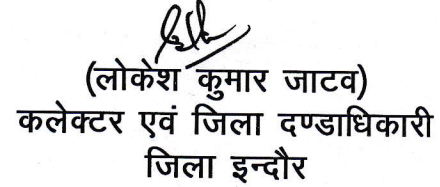 (लोकेश कुमार जाटव)
कलेक्टर एवं जिला दण्डाधिकारी
जिला इन्दौर